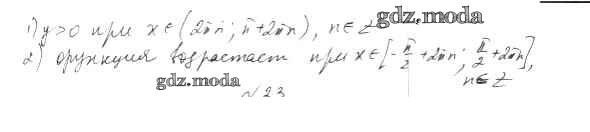 1) y>0 при x∈(2πn; π+2πn), n∈Z
gdz.moda
2) функция возрастает при x∈[-π/2+2πn; π/2+2πn],
n∈Z
gdz.moda
№23